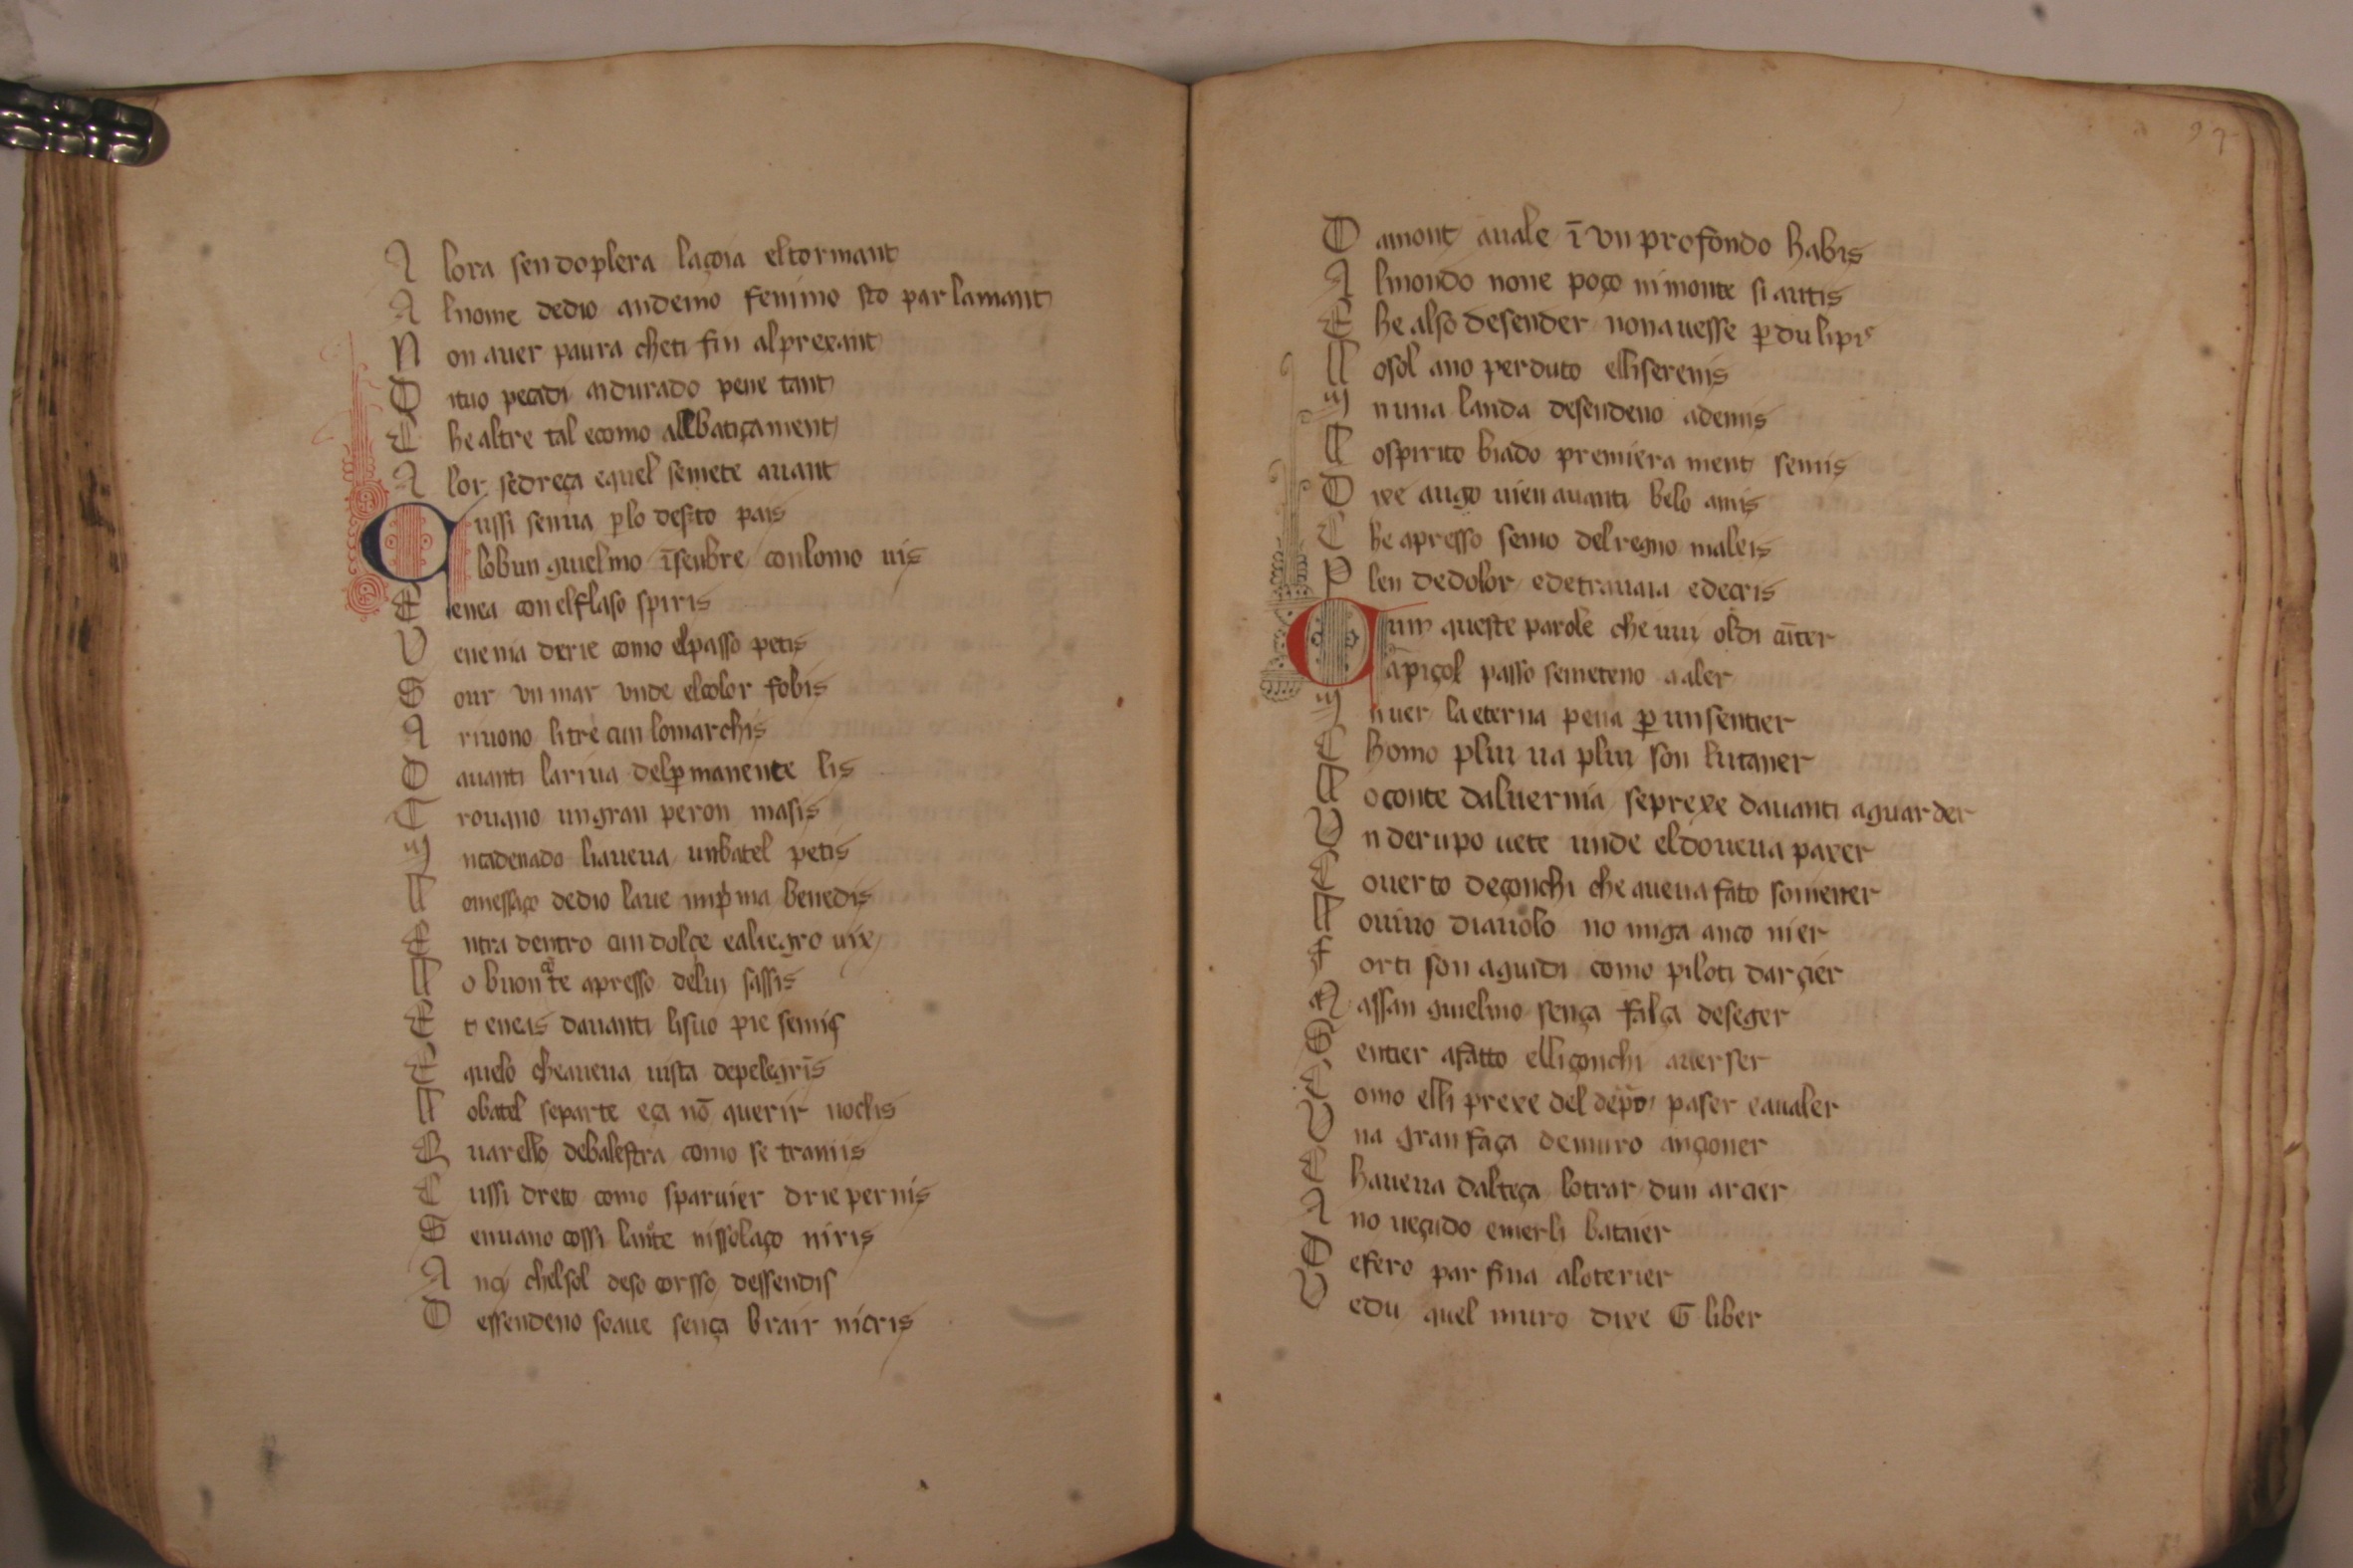 A lora sen doplera laçoia el tormant
A lnome dedio andemo fenimo sto parlamant
N on auer paura cheti fin alprexant
D ituo pecadi andurado pene tant
C he altre tal ecomo albatiçament
A lor sedreça equel semete auant
C ussi senua ꝑlo deserto pais
lobun guielmo īsenbre conlomo uis
E enea con elflaso spiris
V ene nia derie como elpasso petis
S our vn mar vnde elcolor fobis
A riuono litre cun lomarchis
D auanti lariua delꝑmanente lis
T rouano un gran peron masis
I ncadenado liaueua unbatel petis
L omessaço dedio laue imprima benedis
E ntra dentro cun dolçe ealiegro uix
L o buon te apresso deluy sassis
E t eneas dauanti lisuo pie semis
E quelo cheaueua uista depelegrīs
L obatel separte eça nō querir nochis
Q uarello debalestra como se tramis
C ussi dreto como sparuier drie pernis
S enuano cossi nissolaço niris
A nci chelsol deso corsso dessendis
D essendeno soaue sença brair nicris
97
D amont auale ī vn profondo habis
A lmondo none poço nimonte si antis
C he also desender nonauesse ꝑdu lipis
L osol ano perduto elliserenis
I nuna landa desendeno ademis
L ospirito biado premiera ment semis
D ixe augo uien auanti belo amis
C he apresso semo delregno maleis
P len dedolor edetrauaia edecris
C um queste parole che uui oldi cūter
apiçol passo semeteno aaler
I nuer laeterna pena ꝑ un sentier
C homo pluy ua pluy son lutaner
L oconte daluernia seprexe dauanti aguarder
V n derupo uete unde eldoueua paxer
C ouerto deçonchi che aueua fato somener
L ouiuo diauolo no miga anco nier
F orti son aguidi como piloti darçier
N assan guielmo sença falça deseger
S entier afatto elliçonchi auerser
C omo elli prexe del paser eaualer
V na gran faça demuro ançoner
C haueua dalteça lotrar dun arcier
A no ueçudo emerli bataier
D efero par fina aloterier
V edu quel muro dixe G liber